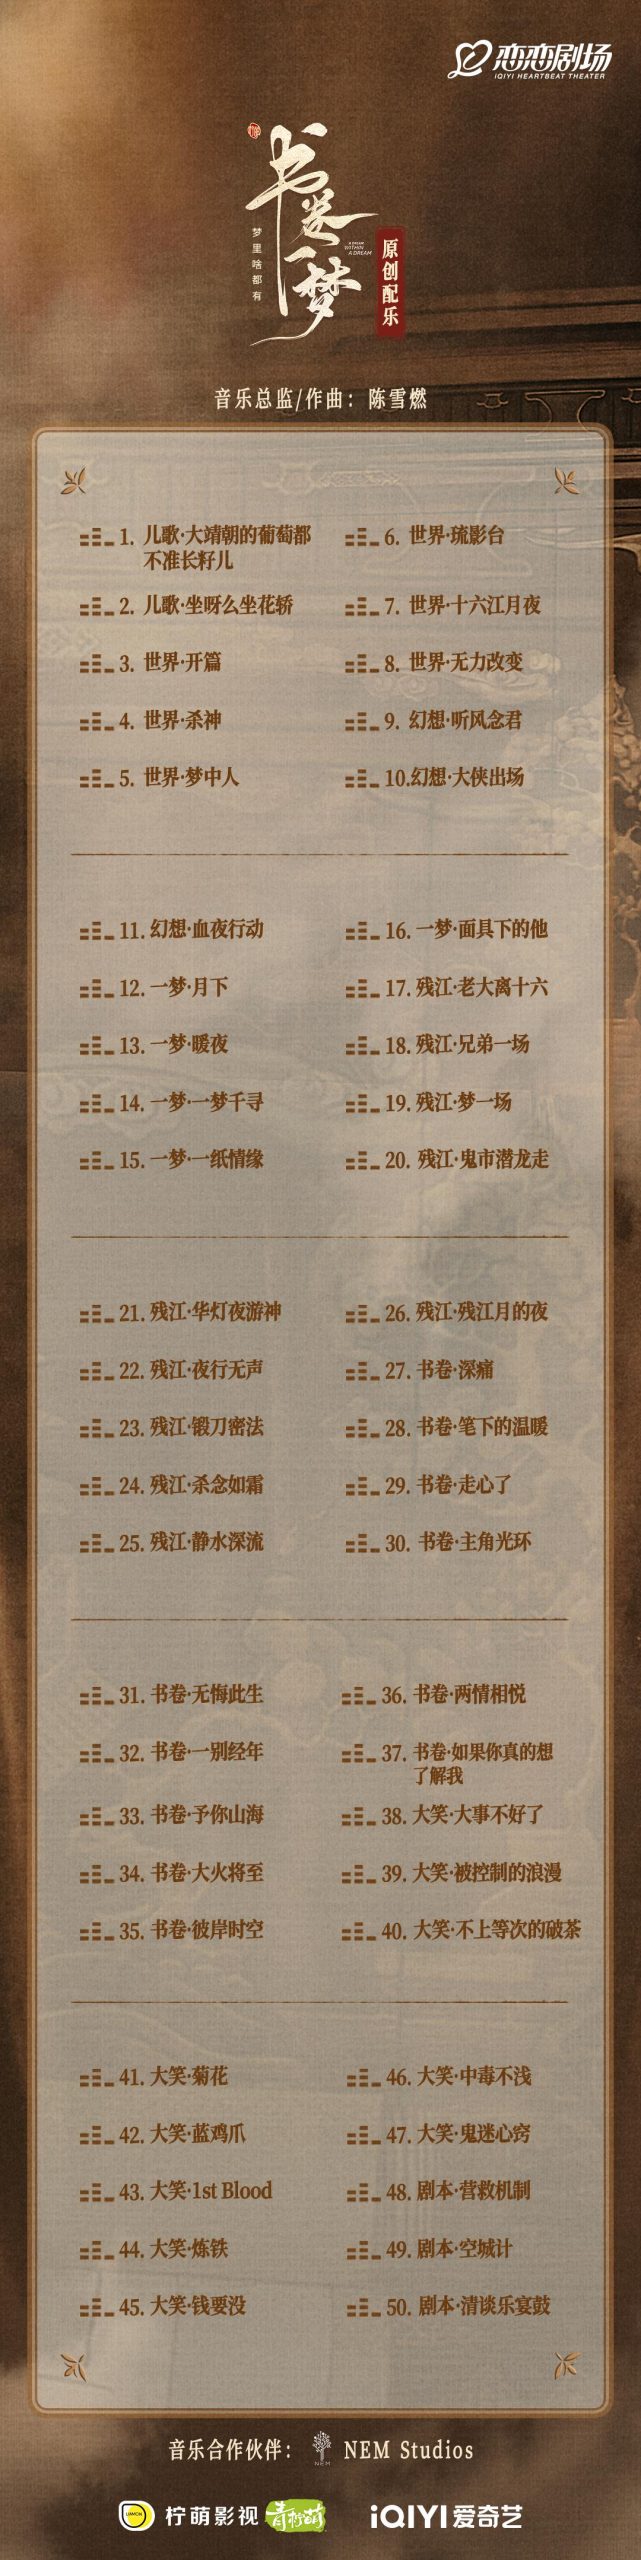 恋恋剧场
IQIYI HEARTBEAT THEATER
书卷一梦
梦里啥都有
A DREAM
WITHIN
A DREAM
原创配乐
音乐总监/作曲：陈雪燃
1. 儿歌·大靖朝的葡萄都
不准长籽儿
2. 儿歌·坐呀么坐花轿
3. 世界·开篇
4. 世界·杀神
5. 世界·梦中人
6. 世界·琉影台
7. 世界·十六江月夜
8. 世界·无力改变
9. 幻想·听风念君
10.幻想·大侠出场
11. 幻想·血夜行动
12. 一梦·月下
13. 一梦·暖夜
14. 一梦·一梦千寻
15. 一梦·一纸情缘
16. 一梦·面具下的他
17. 残江·老大离十六
18. 残江·兄弟一场
19. 残江·梦一场
20. 残江·鬼市潜龙走
21. 残江·华灯夜游神
22. 残江·夜行无声
23. 残江·锻刀密法
24. 残江·杀念如霜
25. 残江·静水深流
26. 残江·残江月的夜
27. 书卷·深痛
28. 书卷·笔下的温暖
29. 书卷·走心了
30. 书卷·主角光环
31. 书卷·无悔此生
32. 书卷·一别经年
33. 书卷·予你山海
34. 书卷·大火将至
35. 书卷·彼岸时空
36. 书卷·两情相悦
37. 书卷·如果你真的想
了解我
38. 大笑·大事不好了
39. 大笑·被控制的浪漫
40. 大笑·不上等次的破茶
41. 大笑·菊花
42. 大笑·蓝鸡爪
43. 大笑·1st Blood
44. 大笑·炼铁
45. 大笑·钱要没
46. 大笑·中毒不浅
47. 大笑·鬼迷心窍
48. 剧本·营救机制
49. 剧本·空城计
50. 剧本·清谈乐宴鼓
音乐合作伙伴：NEM NEM Studios
柠萌影视 青柠萌 iQIYI 爱奇艺